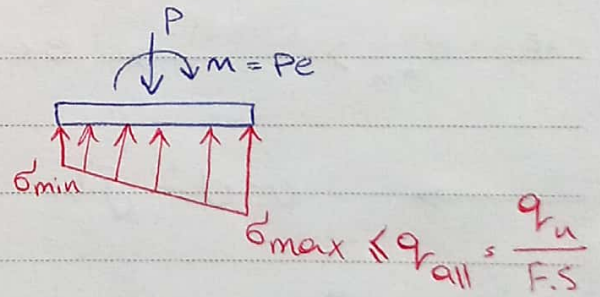 P
M = Pe
σmin
σmax ≤ qall = qu/F.S